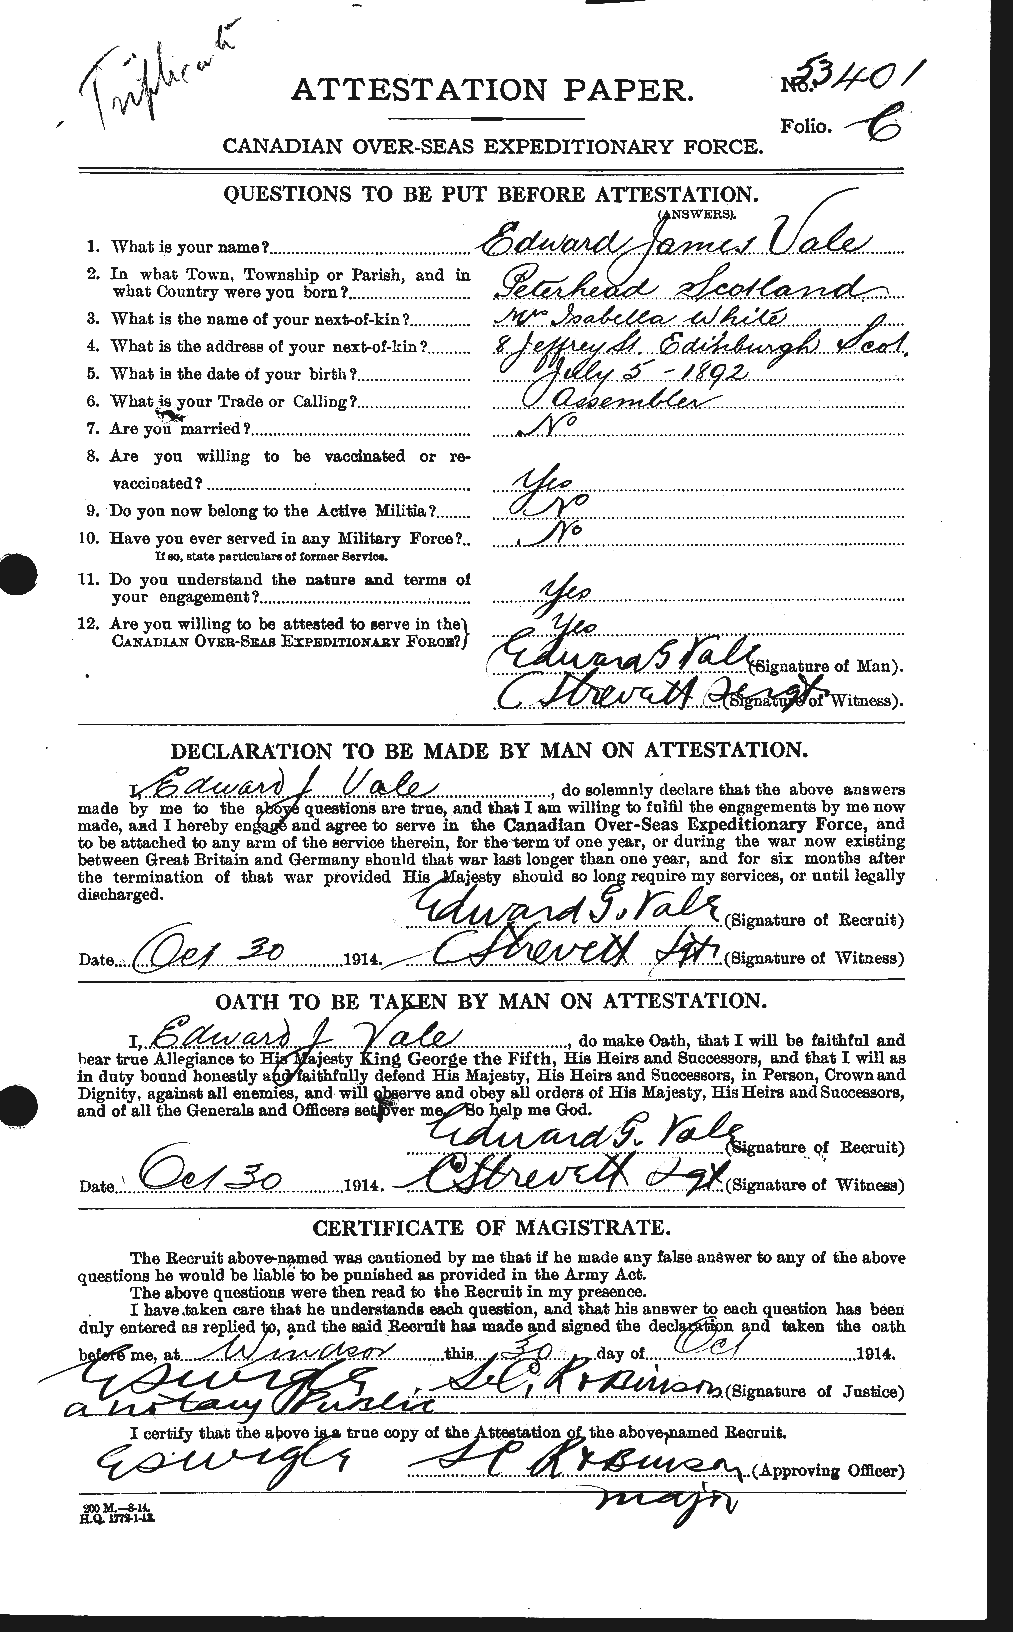 Triplicate
ATTESTATION PAPER.
No. 53401
Folio. C
CANADIAN OVER-SEAS EXPEDITIONARY FORCE.
QUESTIONS TO BE PUT BEFORE ATTESTATION.
(ANSWERS).
1. What is your name? Edward James Vale
2. In what Town, Township or Parish, and in
what Country were you born? Peterhead Scotland
3. What is the name of your next-of-kin? Mrs Isabella White
4. What is the address of your next-of-kin? 8 Jeffrey St. Edinburgh Scot.
5. What is the date of your birth? July 5 - 1892
6. What is your Trade or Calling? Assembler
7. Are you married? No
8. Are you willing to be vaccinated or re-
vaccinated? Yes
9. Do you now belong to the Active Militia? No
10. Have you ever served in any Military Force? No
If so, state particulars of former Service.
11. Do you understand the nature and terms of
your engagement? Yes
12. Are you willing to be attested to serve in the
CANADIAN OVER-SEAS EXPEDITIONARY FORCE? Yes
Edward G Vale (Signature of Man).
C Strevett Sergt (Signature of Witness).
DECLARATION TO BE MADE BY MAN ON ATTESTATION.
I, Edward J Vale, do solemnly declare that the above answers
made by me to the above questions are true, and that I am willing to fulfil the engagements by me now
made, and I hereby engage and agree to serve in the Canadian Over-Seas Expeditionary Force, and
to be attached to any arm of the service therein, for the term of one year, or during the war now existing
between Great Britain and Germany should that war last longer than one year, and for six months after
the termination of that war provided His Majesty should so long require my services, or until legally
discharged.
Edward G. Vale (Signature of Recruit)
Date Oct 30 1914. C Strevett Sgt (Signature of Witness)
OATH TO BE TAKEN BY MAN ON ATTESTATION.
I, Edward J Vale, do make Oath, that I will be faithful and
bear true Allegiance to His Majesty King George the Fifth, His Heirs and Successors, and that I will as
in duty bound honestly and faithfully defend His Majesty, His Heirs and Successors, in Person, Crown and
Dignity, against all enemies, and will observe and obey all orders of His Majesty, His Heirs and Successors,
and of all the Generals and Officers set over me. So help me God.
Edward G. Vale (Signature of Recruit)
Date Oct 30 1914. C Strevett Sgt (Signature of Witness)
CERTIFICATE OF MAGISTRATE.
The Recruit above-named was cautioned by me that if he made any false answer to any of the above
questions he would be liable to be punished as provided in the Army Act.
The above questions were then read to the Recruit in my presence.
I have taken care that he understands each question, and that his answer to each question has been
duly entered as replied to, and the said Recruit has made and signed the declaration and taken the oath
before me, at Windsor this 30 day of Oct 1914.
E S Wigle S. C. Robinson (Signature of Justice)
a notary Public
I certify that the above is a true copy of the Attestation of the above-named Recruit.
E S Wigle S C Robinson (Approving Officer)
Major
200 M.—8-14.
H.Q. 1772-1-13.